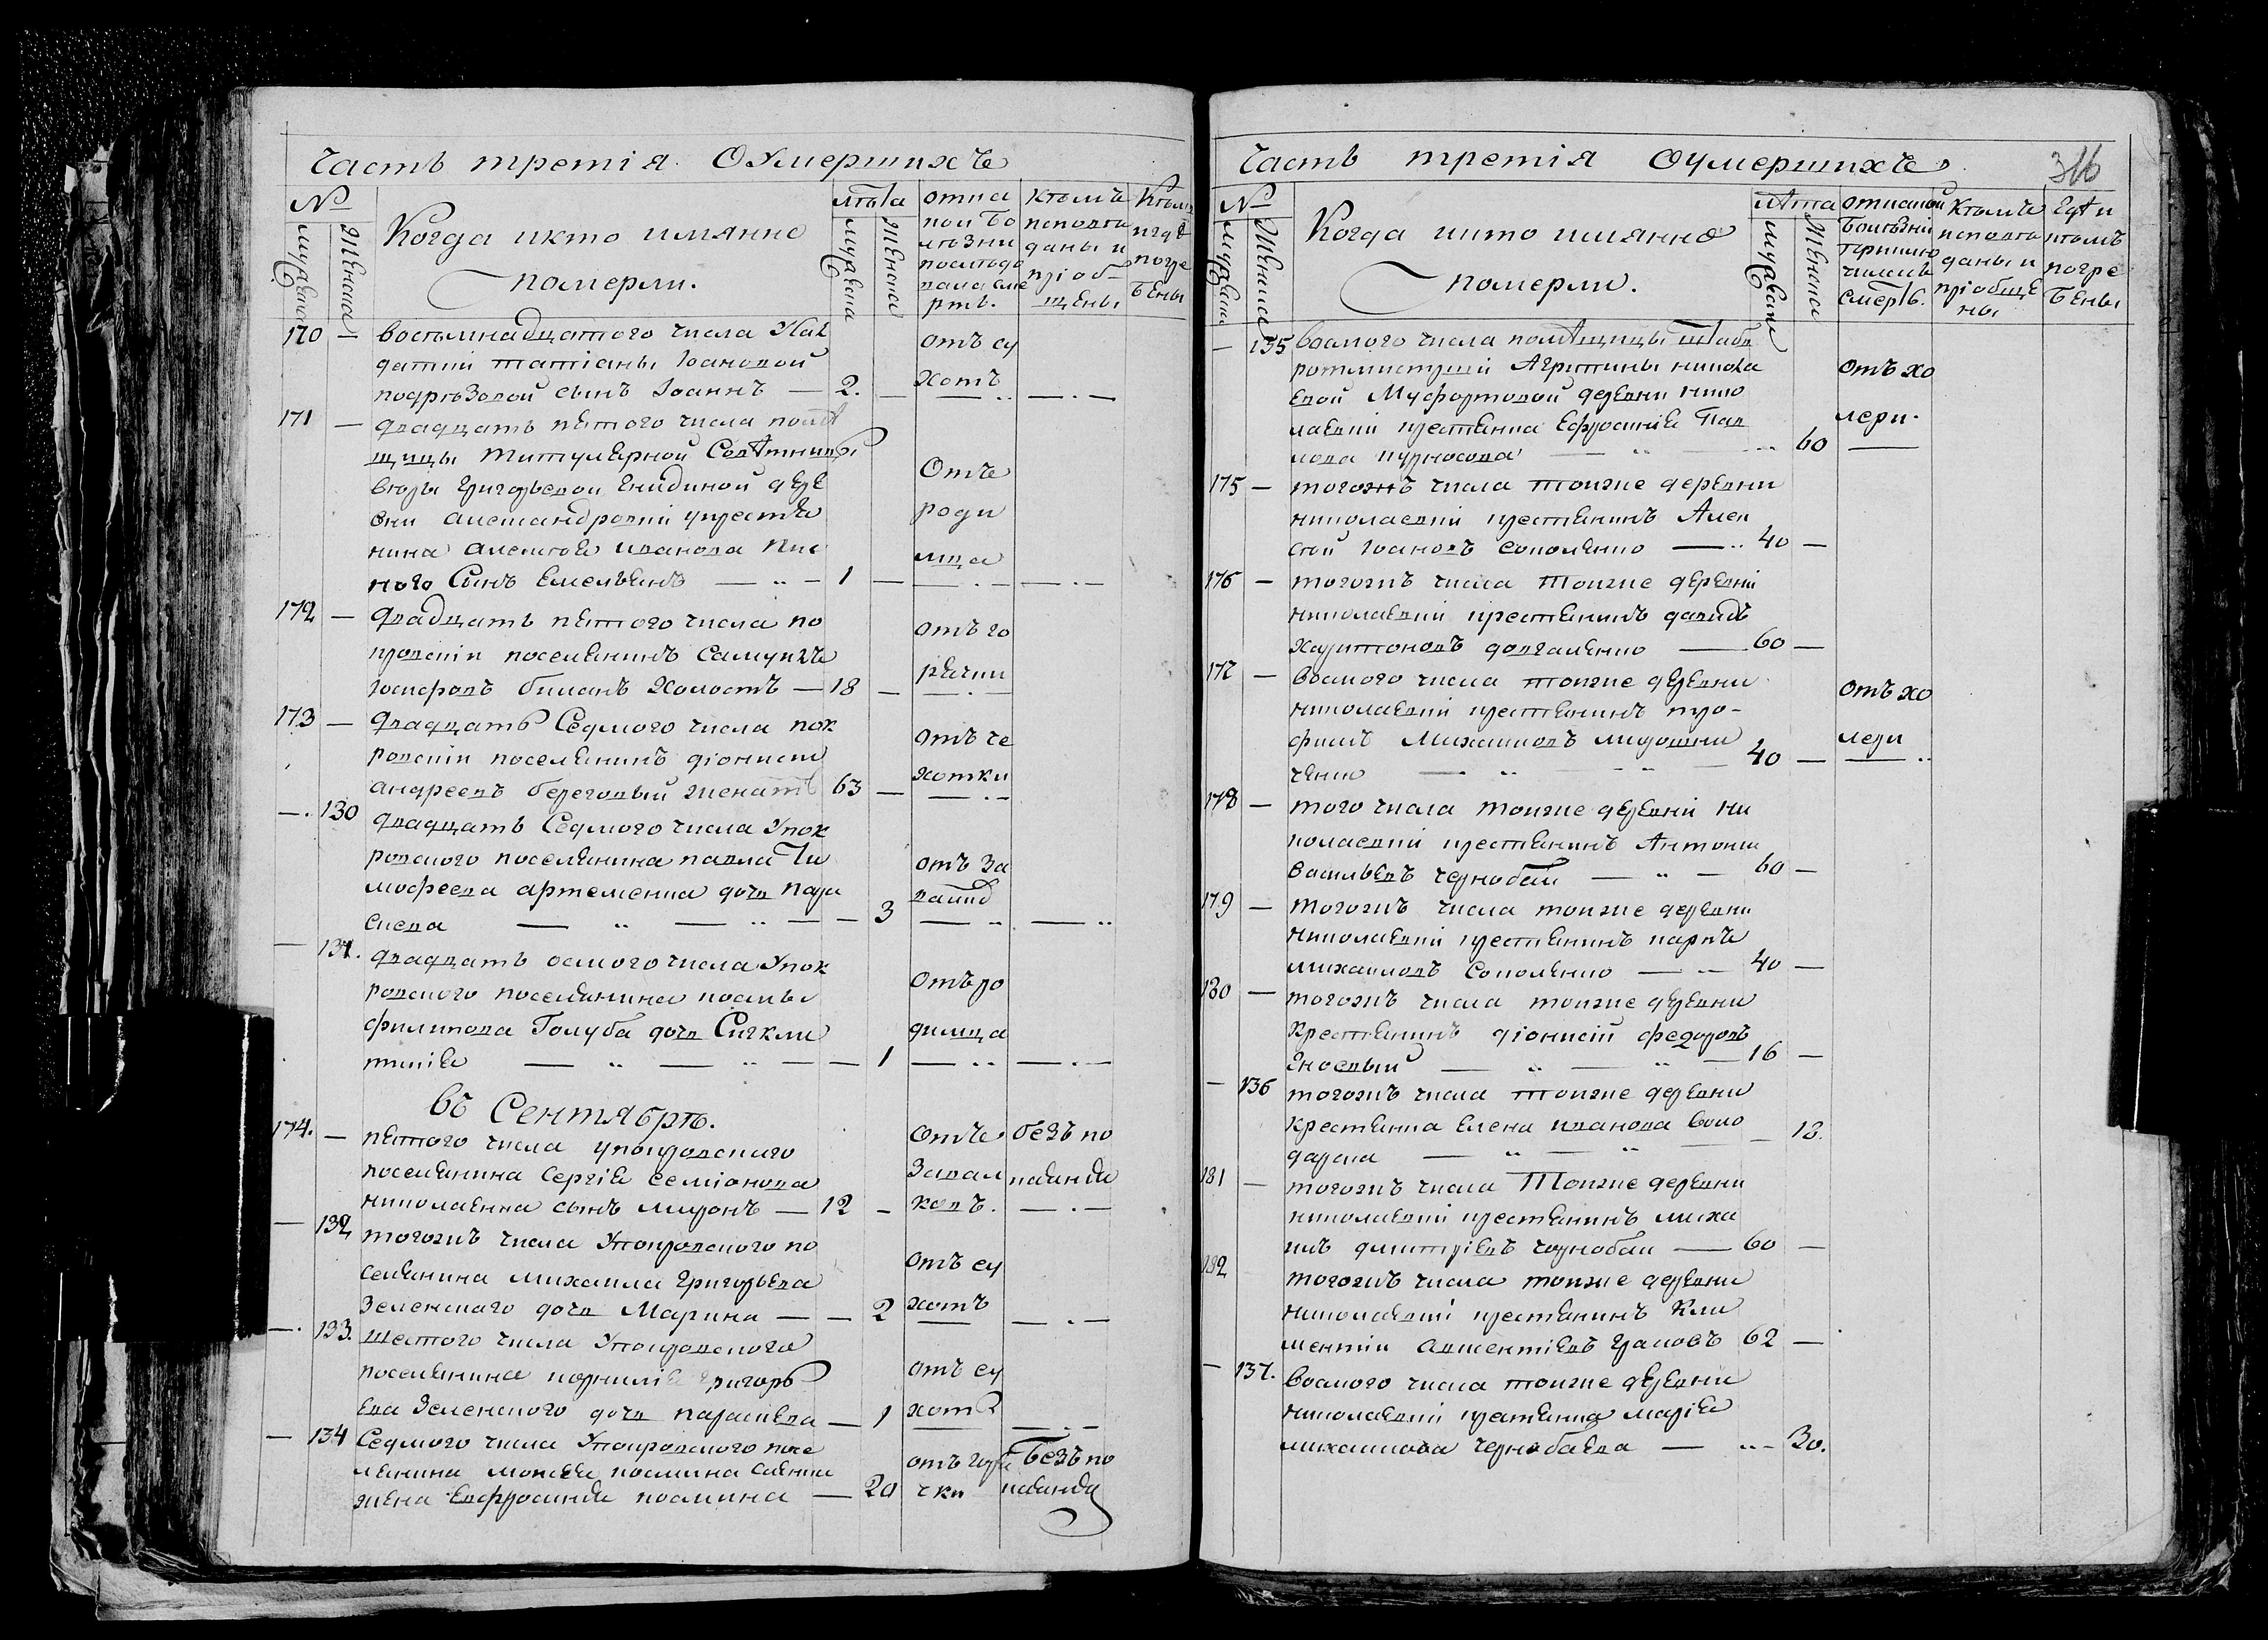 Часть третія Оумершихъ
№
мужеска
женска
Когда икто имянно
померли.
лѣта
мужеска
женска
отка
кой бо
лѣзни
послѣдо
вала сме
рть.
кѣмъ
исповѣ
даны и
пріоб-
щены
Кѣмъ
игдѣ
погре
бены
170 — восемнадцатого числа
датки татіаны Іоановой
подрѣзовой сынъ Іоаннъ — 2. — отъ су
хотъ
171 — двадцать пятого числа помѣ
щицы титулярной Совѣтницы
григорьевой гнидиной дере
вни александровки укрестья
нина алексѣя иванова
ного Сынъ Емельянъ — 1 — Отъ
роди
мца
172 — двадцать пятого числа по
кровскій поселянинъ Самуилъ
Іосифовъ биланъ Холостъ — 18 — отъ го
рячки
173 — двадцать Седмого числа пок
ровскій поселянинъ діонисій
андреевъ береговый женатъ 63 — отъ че
хотки
— 130 двадцать Седмого числа Упок
ровского поселянина павла Ти
мофеева артеменка дочь пара
скева — 3 отъ за
палицъ
— 131. двадцать осмого числа Упок
ровского поселянина космы
филипова Голуба дочь Сигкли
тикія — 1 отъ ро
димца
въ Сентябрѣ.
174. — пятого числа упокровскаго
поселянина Сергія Семіонова
николаенка сынъ миронъ — 12 — Отъ
Завал
ковъ. безъ по
каянія
— 132 тогожъ числа Упокровского по
селянина михаила григорьева
Зеленскаго дочь Марина — 2 отъ су
хотъ
— 133. шестого числа Упокровского
поселянина корнилія григорь
ева Зеленского дочь параскева — 1 отъ су
хотъ
— 134 Седмого числа Упокровского посе
лянина моисея космина
жена Евфросинія космина — 20 отъ горя
чки Безъ по
каянія
Часть третія Оумершихъ.
316
№
мужеска
женска
Когда икто имянно
померли.
лѣта
мужеска
женска
откакой
болѣзни
приклю
чилась
смерть.
Кѣмъ
исповѣ
даны и
пріобще
ны
Гдѣ и
кѣмъ
погре
бены
— 135 восмого числа помѣщицы штабъ
ротмистрши Агрипины никола
евой Муфортовой деревни нико
лаевки крестянка Ефросинія Пав
лова курносова — 60 отъ хо
лери.
175 — тогожъ числа тоижне деревни
николаевки крестянинъ Алек
сѣй Іоановъ Соколянко — 40 —
176 — тогожъ числа тоижне деревни
николаевки крестянинъ давидъ
харитоновъ довгаленко — 60 —
177 — восмого числа тоижне деревни
николаевки крестянинъ тро-
фимъ Михаиловъ мирошни
ченко — 40 — отъ хо
лери
178 — того числа тоижне деревни ни
колаевки крестянинъ Антоній
Васильевъ чернобай — 60 —
179 — тогожъ числа тоижне деревни
николаевки крестянинъ карпъ
михаиловъ Соколянко — 40 —
180 — тогожъ числа тоижне деревни
Крестянинъ діонисій федоровъ
Гноевый — 16 —
— 136 тогожъ числа тоижне деревни
крестянка Елена иванова Воло
дарска — 18.
181 — тогожъ числа Тоижне деревни
николаевки крестянинъ миха
илъ дмитріевъ чернобай — 60 —
182 тогожъ числа тоижне деревни
николаевки крестянинъ Кли
ментій авксентіевъ граковъ 62 —
— 137. восмого числа тоижне деревни
николаевки крестянка марія
михаилова чернобаева — 30.